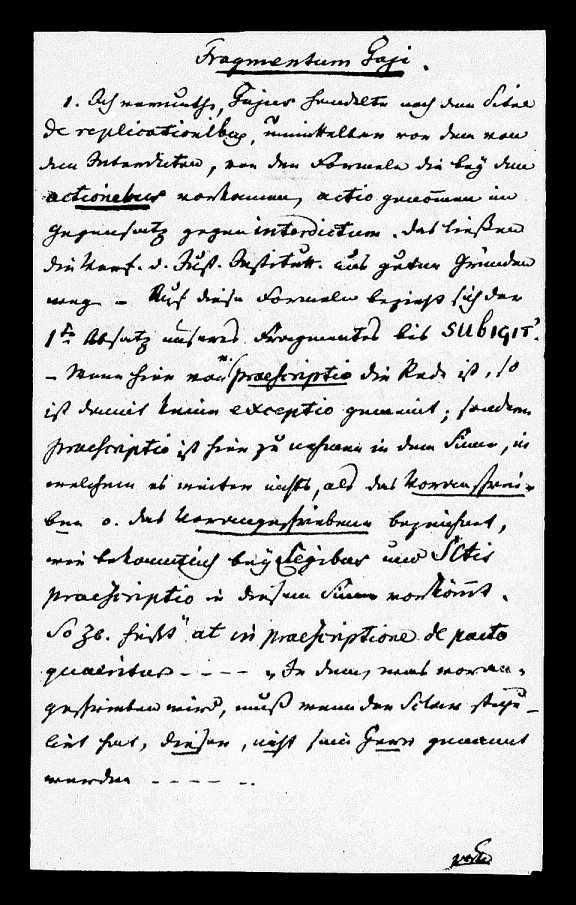 Fragmentum Gaji.
1. Ich vermuthe, Gajus handelte nach dem Titel
de replicationibus, unmittelbar vor dem von
den Interdicten, von den Formeln die bey den
actionebus vorkamen, actio genom̄en im
Gegensatz gegen interdictum. Das ließen
die Verf. d. Just. Institutt. aus guten Gründen
weg – Auf diese Formeln bezieht sich der
1te Absatz unseres Fragmentes bis SUBIGIT.
– Wenn hier von praescriptio die Rede ist, so
ist damit keine exceptio gemeint; sondern
praescriptio ist hier zu nehmen in dem Sinne, in
welchem es weiter nichts, als das Voranschrei-
ben o. das Vorangeschriebene bezeichnet,
wie bekanntlich bey Legibus und SCtis
praescriptio in diesem Sinne vorkom̄t.
So zb. heißt "at in praescriptione de pacto
quaeritur - - - - „In dem, was voran-
geschrieben wird, muß wenn der Sclav stipu-
lirt hat, dieser, nicht sein Herr genannt
werden - - - - -.